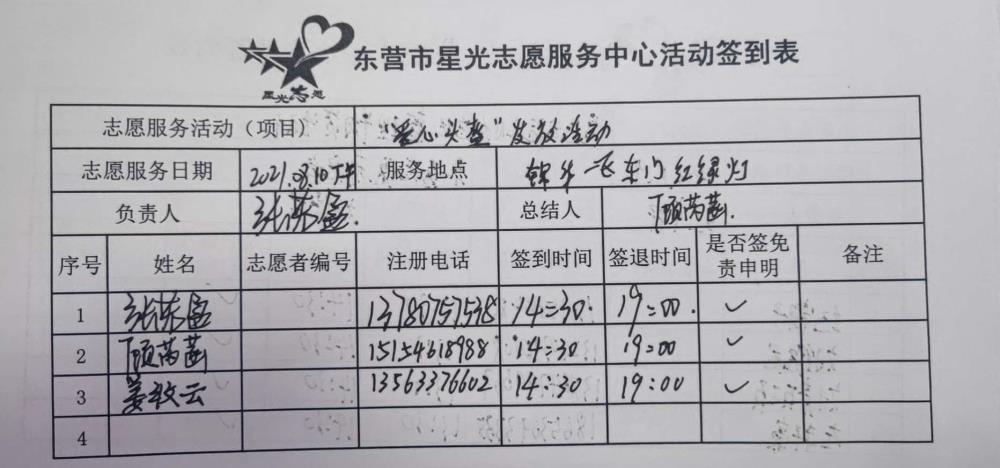 星光志愿
东营市星光志愿服务中心活动签到表
志愿服务活动（项目） “爱心头盔”发放活动
志愿服务日期 2021.08.10下午 服务地点 锦华一飞东门红绿灯
负责人 张东盈. 总结人 顾芮菡.
序号 姓名 志愿者编号 注册电话 签到时间 签退时间 是否签免责申明 备注
1 张东盈 13780757538 14:30. 19:00. ✓
2 顾芮菡 15154618988 14:30 19:00 ✓
3 姜敬云 13563376602 14:30 19:00 ✓
4